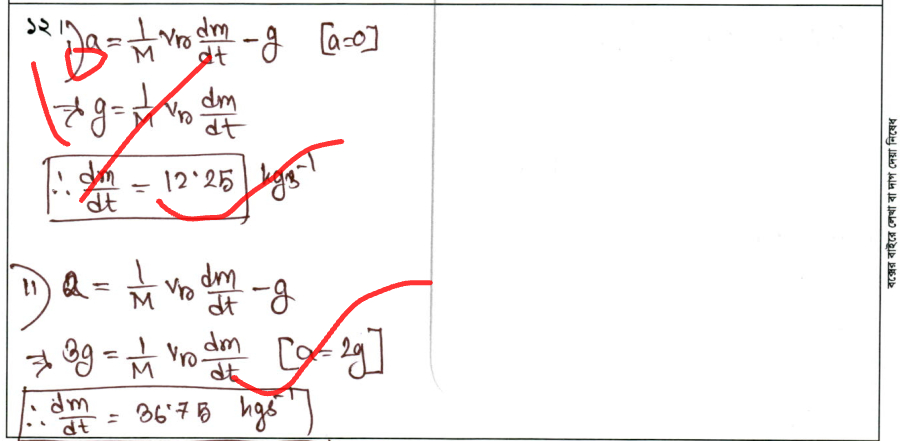 ১২। i) a = 1/M vr dm/dt - g [a=0]
⇒ g = 1/M vr dm/dt
∴ dm/dt = 12.25 kgs⁻¹
ii) a = 1/M vr dm/dt - g
⇒ 3g = 1/M vr dm/dt [a = 2g]
∴ dm/dt = 36.75 kgs⁻¹
বক্সের বাইরে লেখা বা দাগ দেয়া নিষেধ